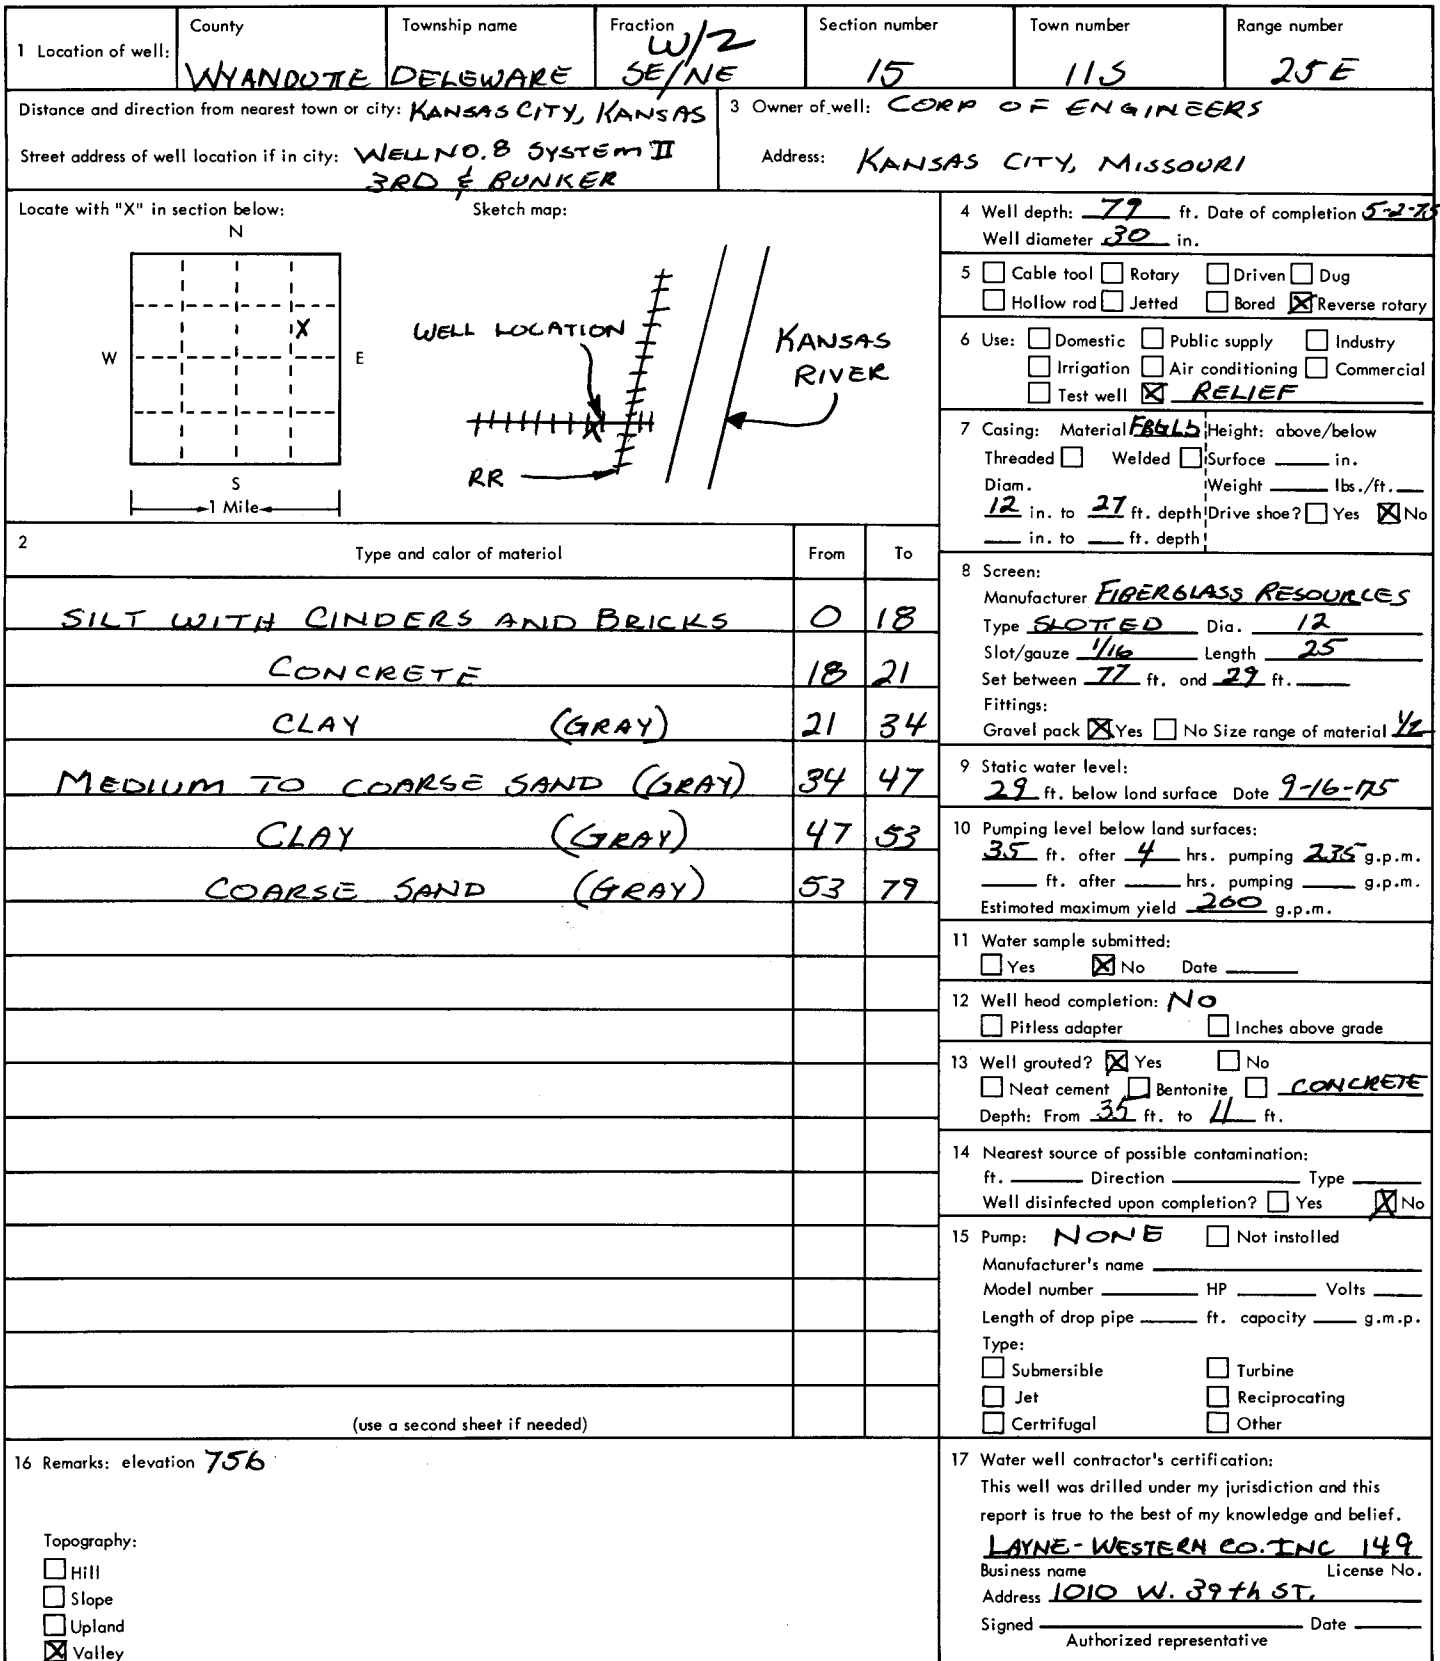 1 Location of well:
County
WYANDOTTE
Township name
DELEWARE
Fraction
W/2
SE/NE
Section number
15
Town number
11S
Range number
25E
Distance and direction from nearest town or city: KANSAS CITY, KANSAS
Street address of well location if in city: WELL NO. 8 SYSTEM II
3RD & BUNKER
3 Owner of well: CORP OF ENGINEERS
Address: KANSAS CITY, MISSOURI
Locate with "X" in section below:
N
X
W
E
S
1 Mile
Sketch map:
WELL LOCATION
X
RR
KANSAS
RIVER
2
Type and color of material
From
To
SILT WITH CINDERS AND BRICKS 0 18
CONCRETE 18 21
CLAY (GRAY) 21 34
MEDIUM TO COARSE SAND (GRAY) 34 47
CLAY (GRAY) 47 53
COARSE SAND (GRAY) 53 79
(use a second sheet if needed)
4 Well depth: 79 ft. Date of completion 5-2-75
Well diameter 30 in.
5 Cable tool Rotary Driven Dug
Hollow rod Jetted Bored X Reverse rotary
6 Use: Domestic Public supply Industry
Irrigation Air conditioning Commercial
Test well X RELIEF
7 Casing: Material FBGLS Height: above/below
Threaded Welded Surface in.
Diam. Weight lbs./ft.
12 in. to 27 ft. depth Drive shoe? Yes X No
in. to ft. depth
8 Screen:
Manufacturer FIBERGLASS RESOURCES
Type SLOTTED Dia. 12
Slot/gauze 1/16 Length 25
Set between 77 ft. and 29 ft.
Fittings:
Gravel pack X Yes No Size range of material 1/2
9 Static water level:
29 ft. below land surface Date 9-16-75
10 Pumping level below land surfaces:
35 ft. after 4 hrs. pumping 235 g.p.m.
ft. after hrs. pumping g.p.m.
Estimated maximum yield 200 g.p.m.
11 Water sample submitted:
Yes X No Date
12 Well head completion: NO
Pitless adapter Inches above grade
13 Well grouted? X Yes No
Neat cement Bentonite CONCRETE
Depth: From 35 ft. to 11 ft.
14 Nearest source of possible contamination:
ft. Direction Type
Well disinfected upon completion? Yes X No
15 Pump: NONE Not installed
Manufacturer's name
Model number HP Volts
Length of drop pipe ft. capacity g.m.p.
Type:
Submersible Turbine
Jet Reciprocating
Certrifugal Other
16 Remarks: elevation 756
Topography:
Hill
Slope
Upland
X Valley
17 Water well contractor's certification:
This well was drilled under my jurisdiction and this
report is true to the best of my knowledge and belief.
LAYNE-WESTERN CO. INC 149
Business name License No.
Address 1010 W. 39th ST.
Signed Date
Authorized representative